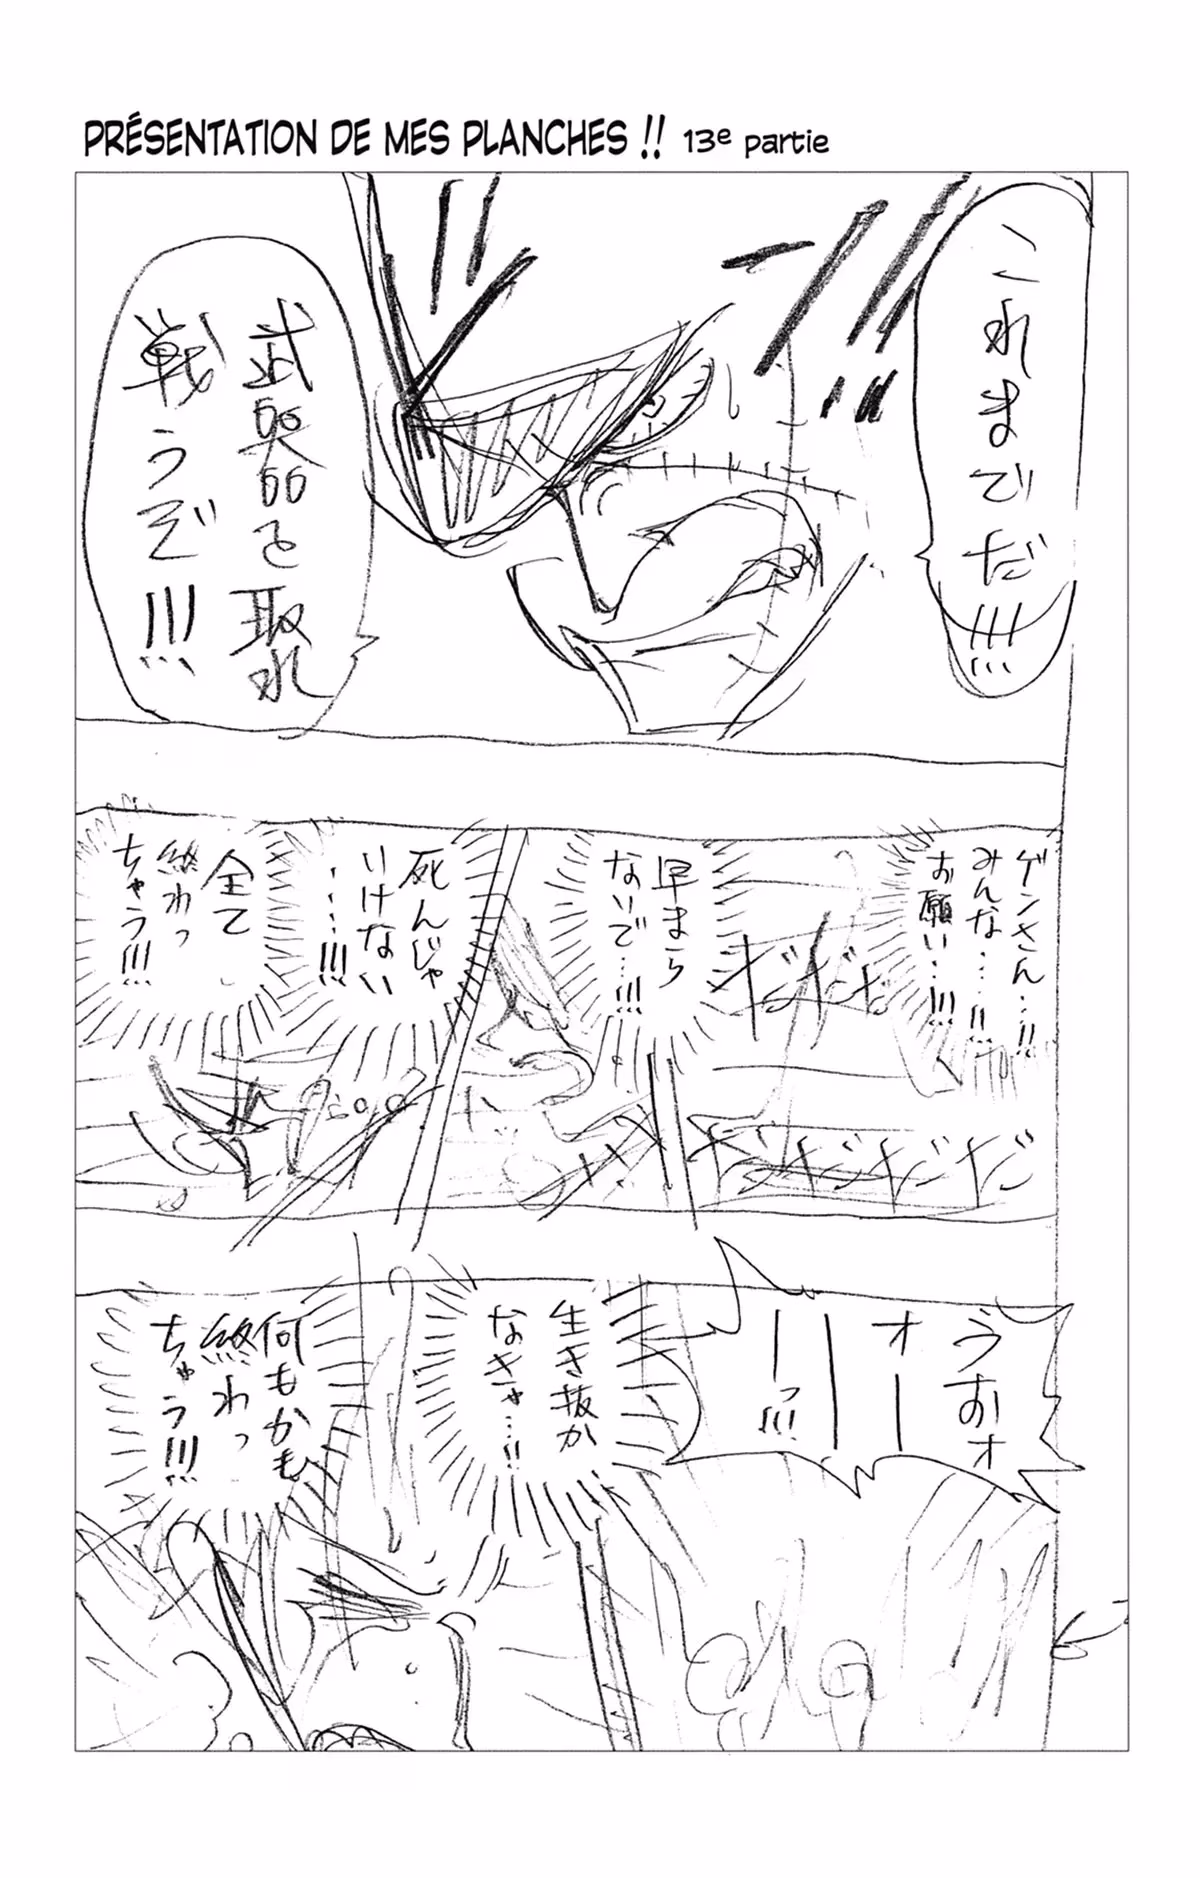 PRÉSENTATION DE MES PLANCHES !! 13e partie
これまでだ!!!
武器を取れ
戦うぞ!!!
ゲンさん…!!
みんな…!!
お願い…!!!
早まら
ないで…!!!
死んじゃ
いけない
……!!!
全て
終わっ
ちゃう!!!
ダダダ
ダダダダダ
うおォ
オー
ーーっ!!!
生き抜か
なきゃ…!!
何もかも
終わっ
ちゃう!!!